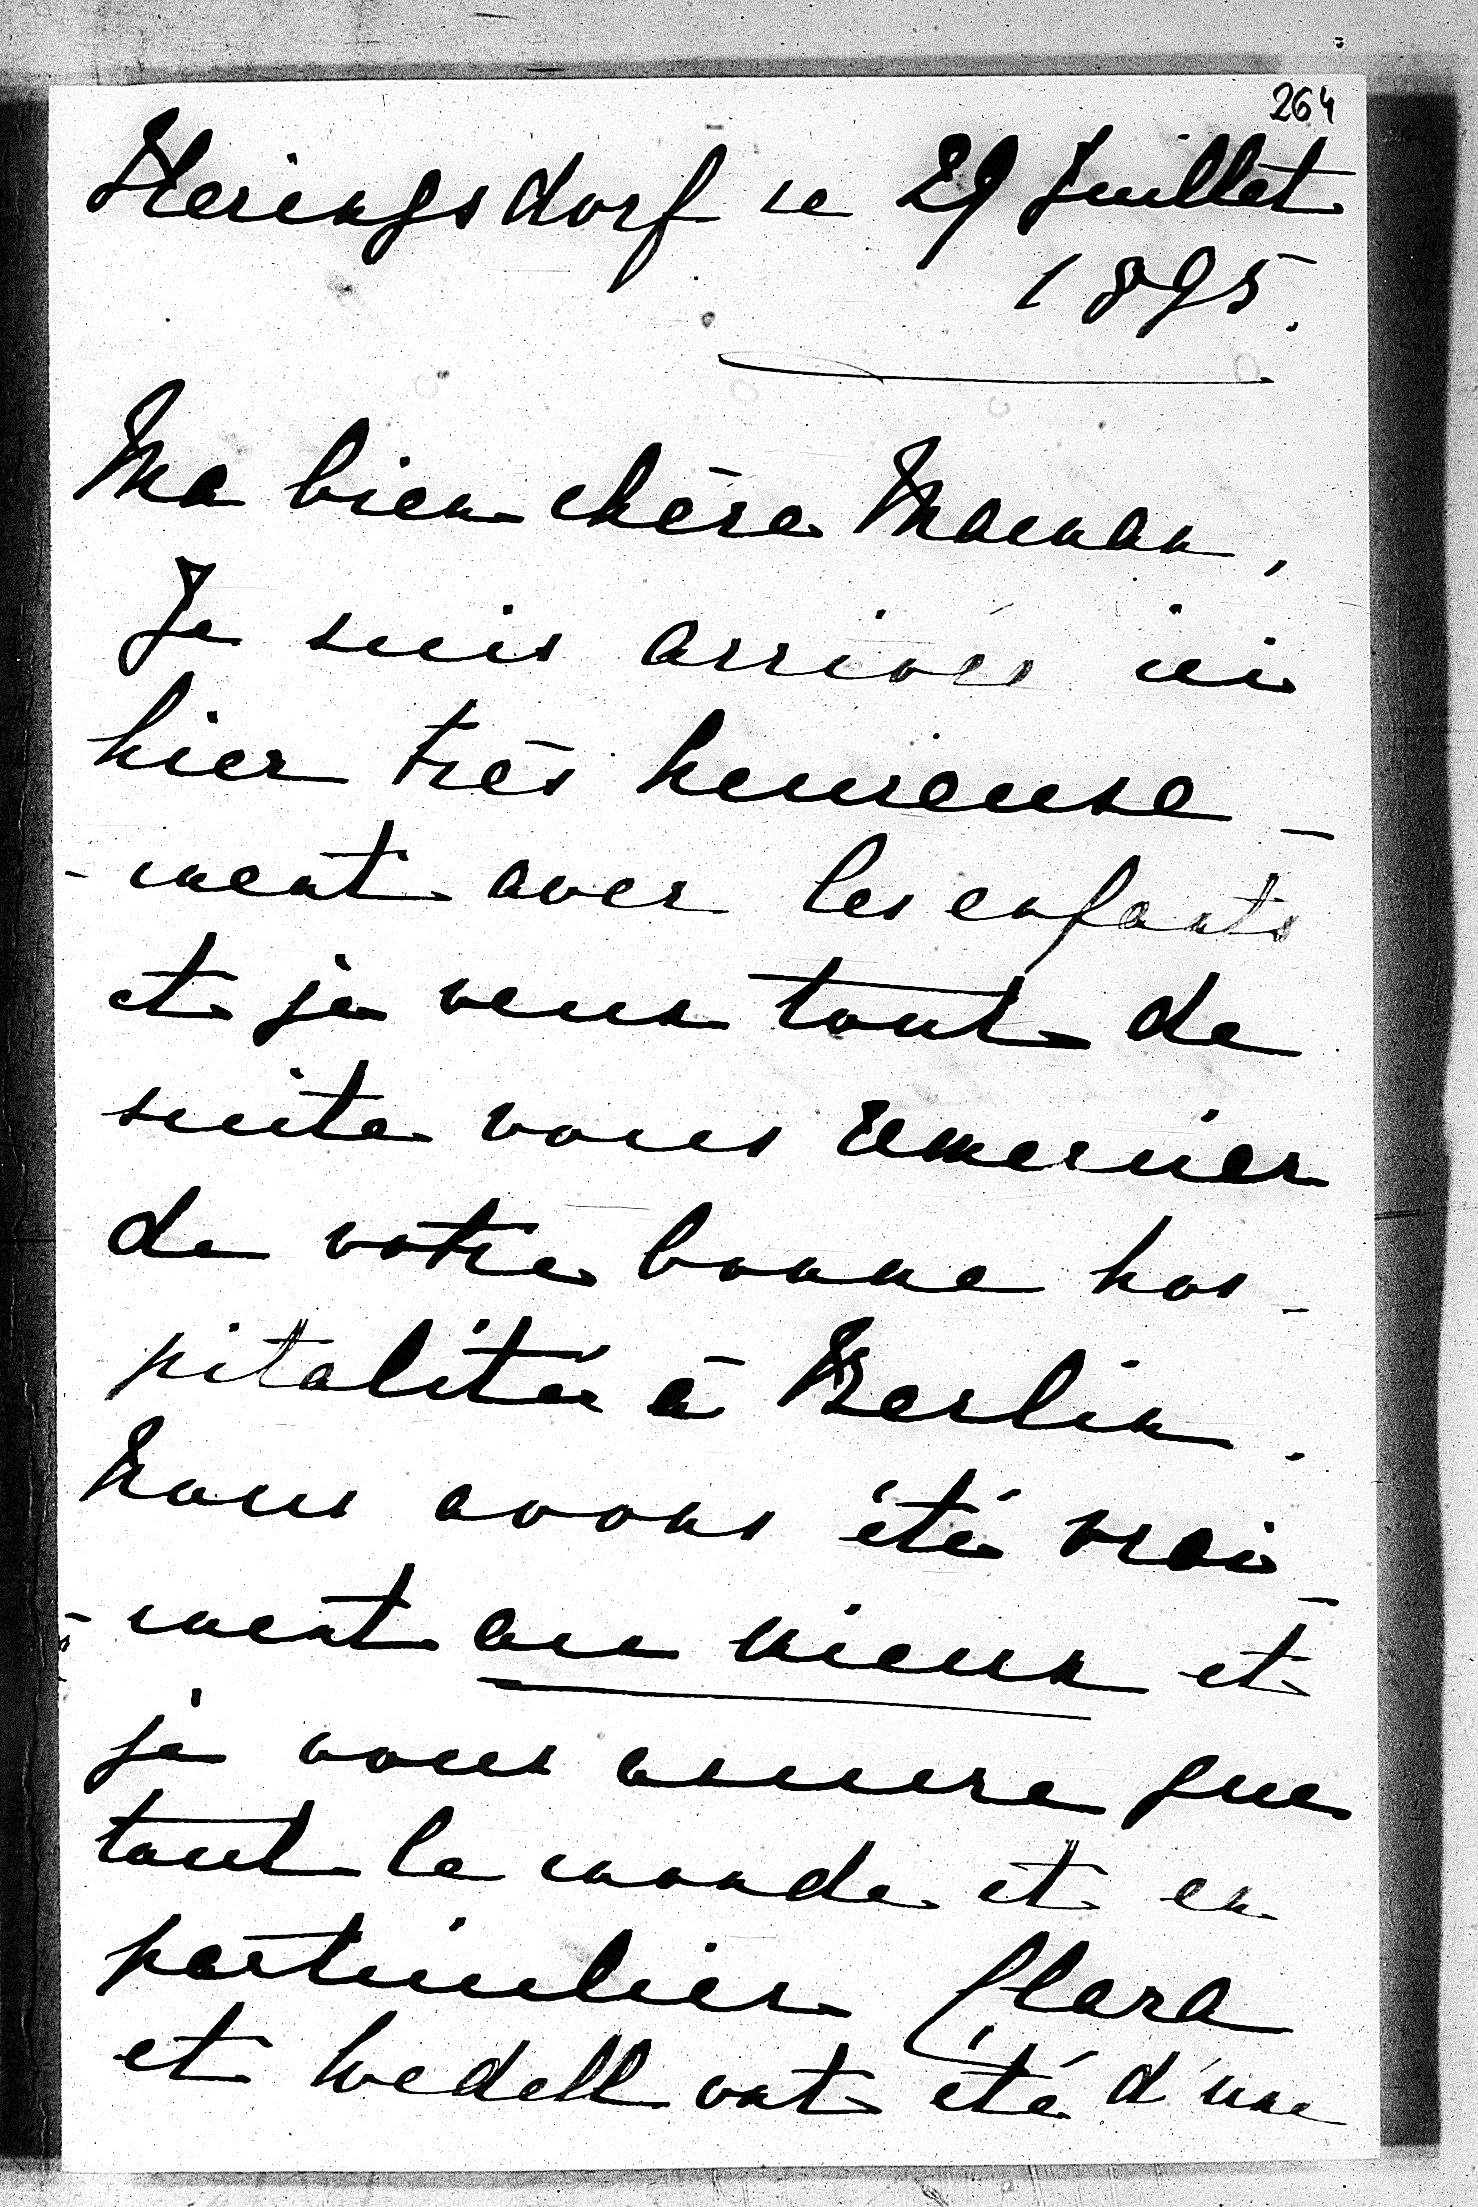 264
Heringsdorf ce 29 Juillet
1895.
Ma bien chère Maman,
Je suis arrivée ici
hier très heureuse-
-ment avec les enfants
et je veux tout de
suite vous remercier
de votre bonne hos-
pitalité à Berlin.
Nous avons été vrai-
-ment au mieux et
je vous assure que
tout le monde et en
particulier Clara
et Wedell ont été d'une